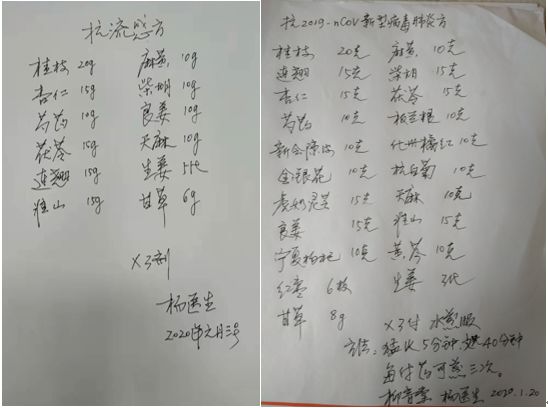 抗流感方
桂枝 20g 麻黄 10g
杏仁 15g 柴胡 10g
芍药 10g 良姜 10g
茯苓 15g 天麻 10g
连翘 15g 生姜 5片
淮山 15g 甘草 6g
×3剂
杨医生
2020年元月三号
抗2019-nCoV新型病毒肺炎方
桂枝 20克 麻黄 10克
连翘 15克 柴胡 15克
杏仁 15克 茯苓 15克
芍药 10克 板兰根 10克
新会陈皮 10克 化州橘红 10克
金银花 10克 杭白菊 10克
灵芝 15克 天麻 10克
良姜 15克 淮山 15克
宁夏枸杞 10克 黄芩 10克
红枣 6枚 生姜 3片
甘草 8g
×3付 水煎服
方法：猛火5分钟 40分钟
每付药可煎三次。
杨医生 2020.1.20